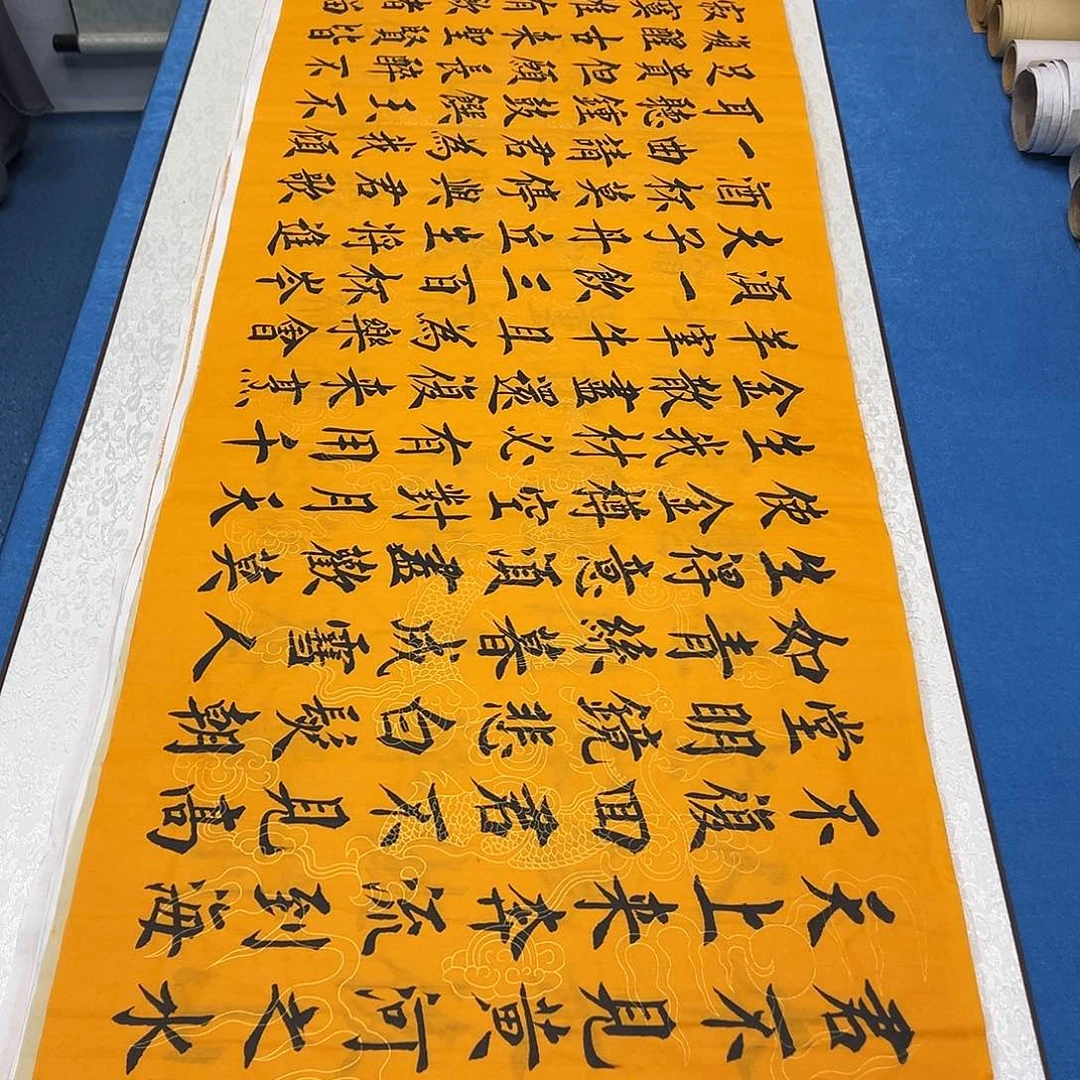 君不見黃河之水
天上来奔流到海
不復回君不見高
堂明鏡悲白髮朝
如青絲暮成雪人
生得意須盡歡莫
使金樽空對月天
生我材必有用千
金散盡還復来烹
羊宰牛且為樂會
須一飲三百杯岑
夫子丹丘生將進
酒杯莫停與君歌
一曲請君為我傾
耳聽鐘鼓饌玉不
足貴但願長醉不
須醒古来聖賢皆
寂寞惟有飲者留